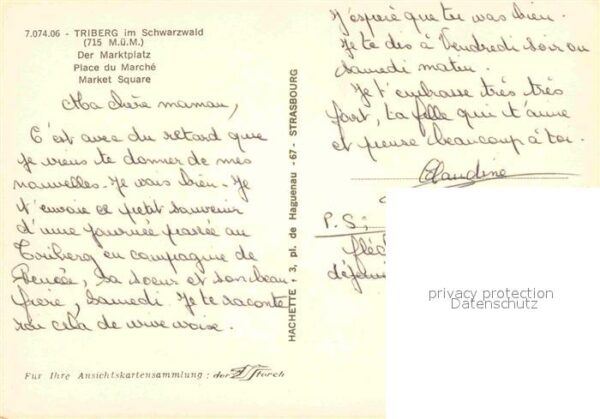 7.074.06 - TRIBERG im Schwarzwald
(715 M.ü.M.)
Der Marktplatz
Place du Marché
Market Square
Ma chère maman,
C'est avec du retard que
je viens te donner de mes
nouvelles. Je vais bien. Je
t'envoie ce petit souvenir
d'une journée passée au
Triberg en compagnie de
Renée, sa soeur et son beau
frère, samedi. Je te raconterai
cela de vive voix.
HACHETTE + 3, pl. de Haguenau - 67 - STRASBOURG
J'espère que tu vas bien.
Je te dis à Vendredi soir ou
samedi matin.
Je t'embrasse très très
fort, ta fille qui t'aime
et pense beaucoup à toi.
Claudine
P.S:
privacy protection
Datenschutz
Für Ihre Ansichtskartensammlung : der Storch